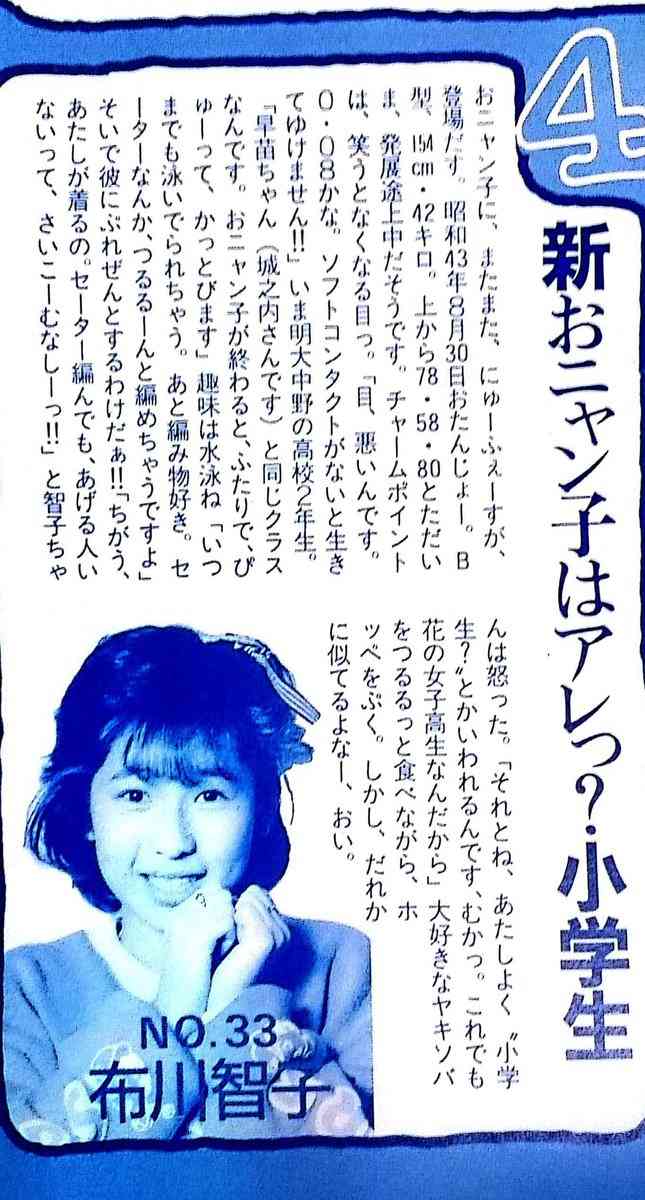 4
新おニャン子はアレっ?・小学生
おニャン子に、またまた、にゅーふぇーすが、
登場だす。昭和43年8月30日おたんじょー。B
型、154cm・42キロ。上から78・58・80とただい
ま、発展途上中だそうです。チャームポイント
は、笑うとなくなる目っ。「目、悪いんです。
0・08かな。ソフトコンタクトがないと生き
てゆけません!!」いま明大中野の高校2年生。
「早苗ちゃん(城之内さんです)と同じクラス
なんです。おニャン子が終わると、ふたりで、び
ゅーって、かっとびます」趣味は水泳ね「いつ
までも泳いでられちゃう。あと編み物好き。セ
ーターなんか、つるるーんと編めちゃうですよ」
そいで彼にぷれぜんとするわけだぁ!!「ちがう、
あたしが着るの。セーター編んでも、あげる人い
ないって、さいこーむなしーっ!!」と智子ちゃ
んは怒った。「それとね、あたしよく〝小学
生?〟とかいわれるんです、むかっ。これでも
花の女子高生なんだから」大好きなヤキソバ
をつるるっと食べながら、ホ
ッペをぷく。しかし、だれか
に似てるよなー、おい。
NO.33
布川智子